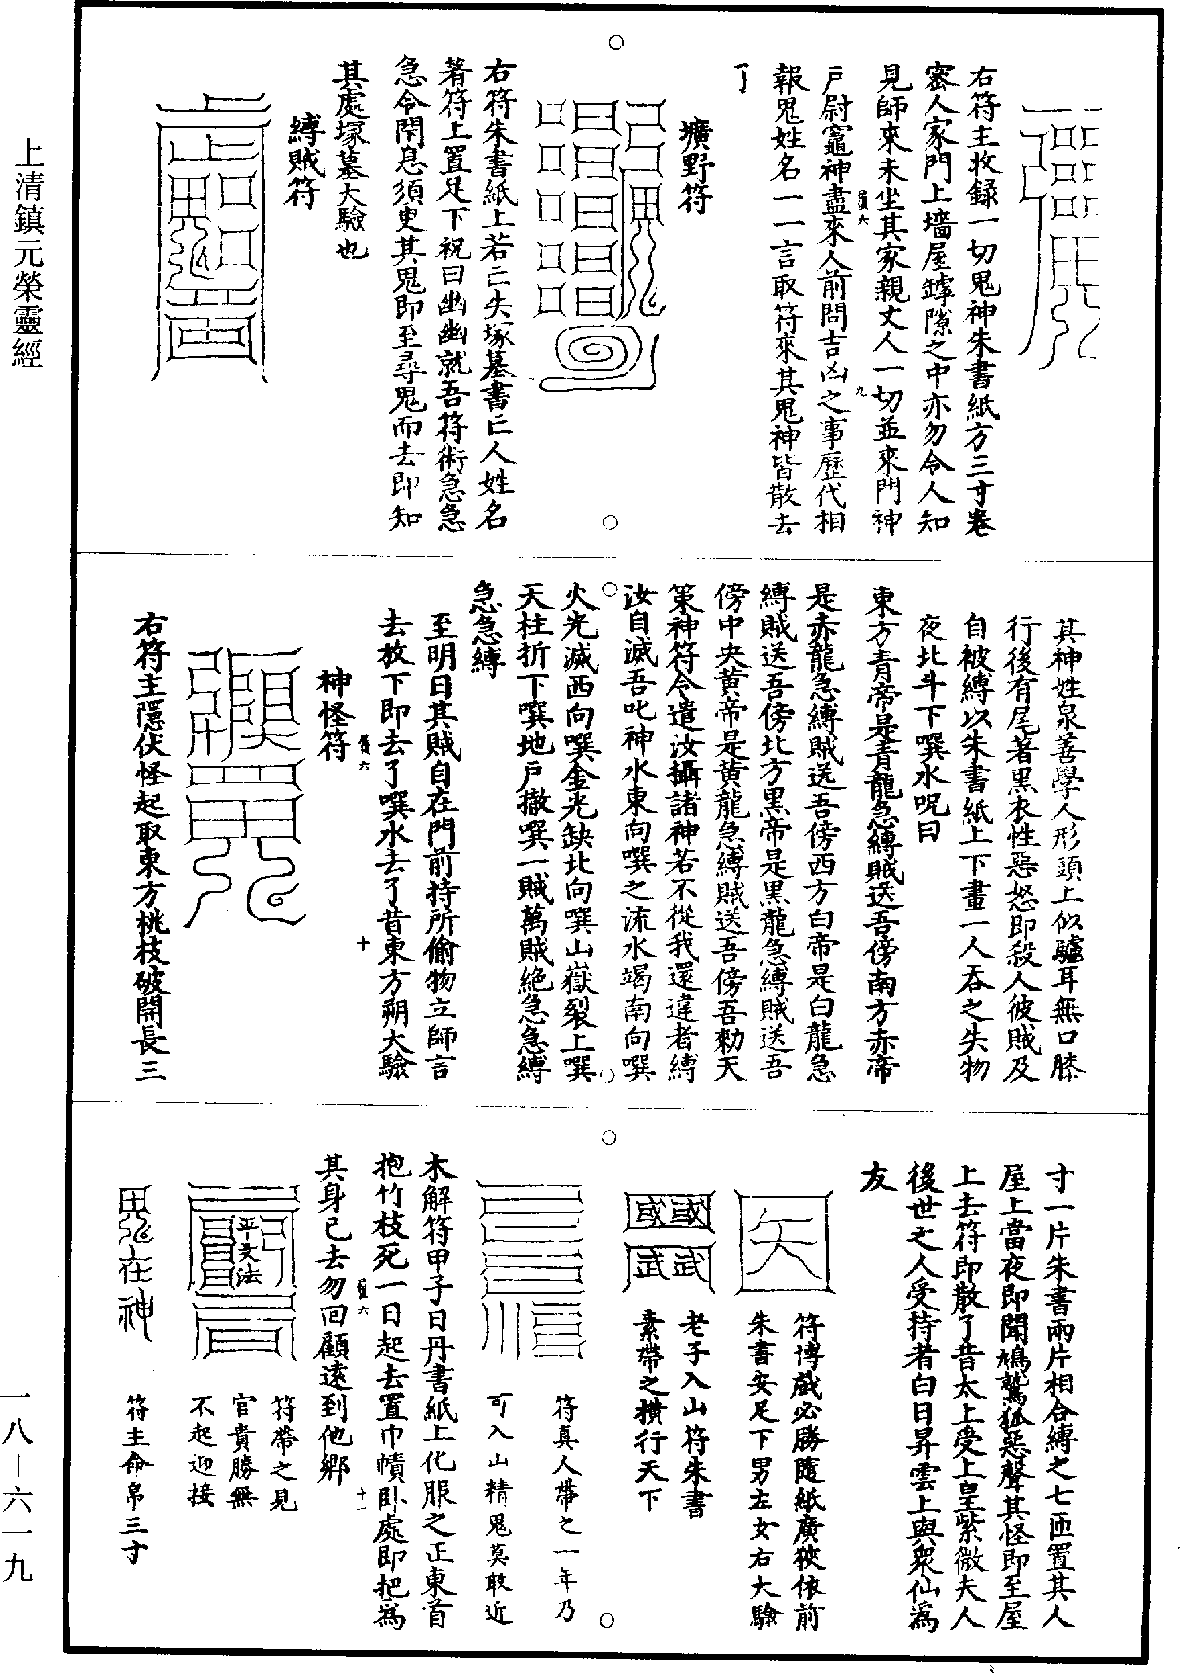 上清鎮元榮靈經
右符主收録一切鬼神朱書紙方三寸卷
密人家門上墻屋罅隙之中亦勿令人知
見師來未坐其家親丈人一切並來門神
戶尉竈神盡來人前問吉凶之事歷代相
報鬼姓名一一言取符來其鬼神皆散去
了
壙野符
右符朱書紙上若亡失塚墓書亡人姓名
著符上置足下祝曰幽幽就吾符術急急
急令閉息須臾其鬼即至尋鬼而去即知
其處塚墓大驗也
縛賊符
其神姓泉善學人形頭上似驢耳無口膝
行後有尾著黑衣性惡怒即殺人彼賊及
自被縛以朱書紙上下畫一人吞之失物
夜北斗下噀水呪曰
東方青帝是青龍急縛賊送吾傍南方赤帝
是赤龍急縛賊送吾傍西方白帝是白龍急
縛賊送吾傍北方黑帝是黑龍急縛賊送吾
傍中央黄帝是黄龍急縛賊送吾傍吾勑天
策神符令遣汝攝諸神若不從我還違者縛
汝自滅吾叱神水東向噀之流水竭南向噀
火光滅西向噀金光缺北向噀山嶽裂上噀
天柱折下噀地戶撤噀一賊萬賊絶急急縛
急急縛
至明日其賊自在門前持所偷物立師言
去放下即去了噀水去了昔東方朔大驗
神怪符
右符主隱伏怪起取東方桃枝破開長三
寸一片朱書兩片相合縛之七匝置其人
屋上當夜即聞鳩鷲狐惡聲其怪即至屋
上去符即散了昔太上受上皇紫微夫人
後世之人受持者白日昇雲上與衆仙爲
友
符博戲必勝隨紙廣狹依前
朱書安足下男左女右大驗
老子入山符朱書
素帶之横行天下
符真人帶之一年乃
可入山精鬼莫敢近
木解符甲子日丹書紙上化服之正東首
抱竹枝死一日起去置巾幘卧處即把為
其身已去勿回顧遠到他鄉
符帶之見
官貴勝無
不起迎接
符主命帛三寸
一八—六一九